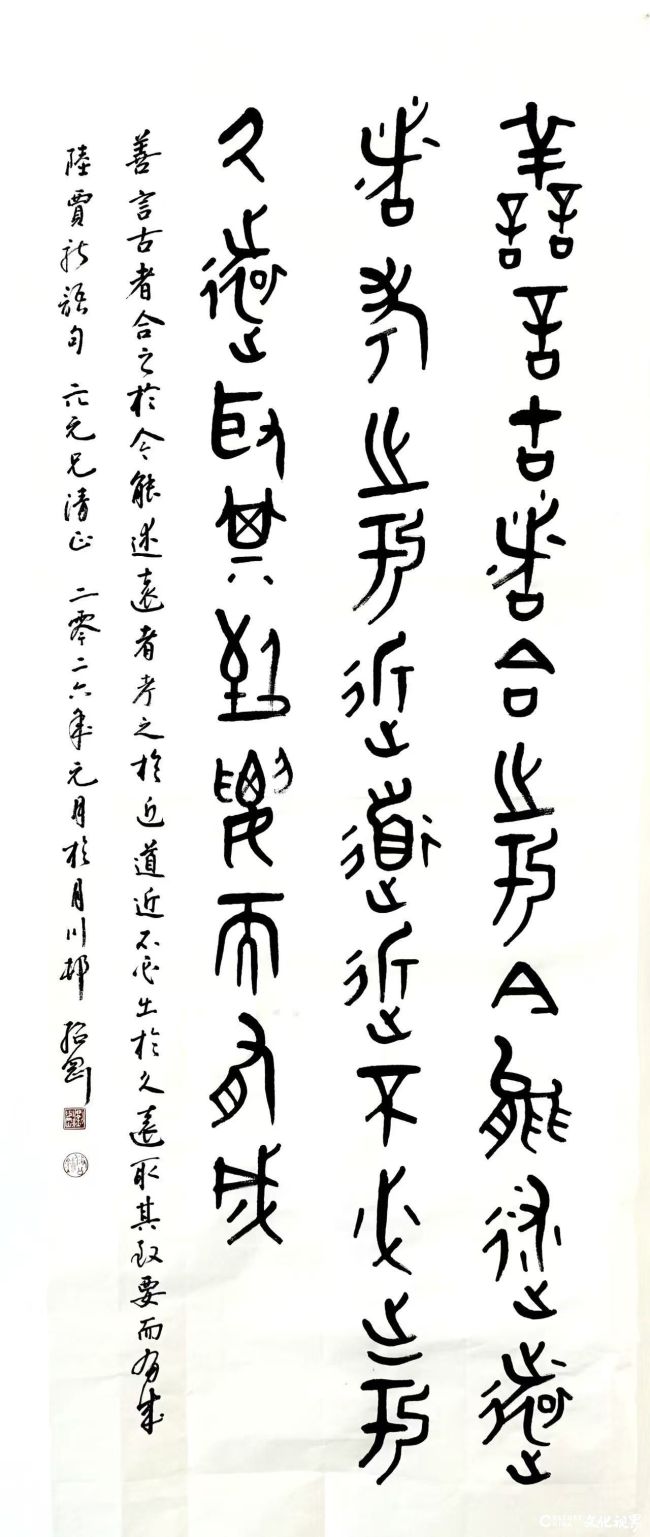 善言古者合之於今能述遠
者考之於近道近不必出於
久遠取其致要而有成
善言古者合之於今能述遠者考之於近道近不必出於久遠取其致要而有成
陸賈新語句 六元兄清正 二零二六年元月於月川邨 紹剛
文化视界